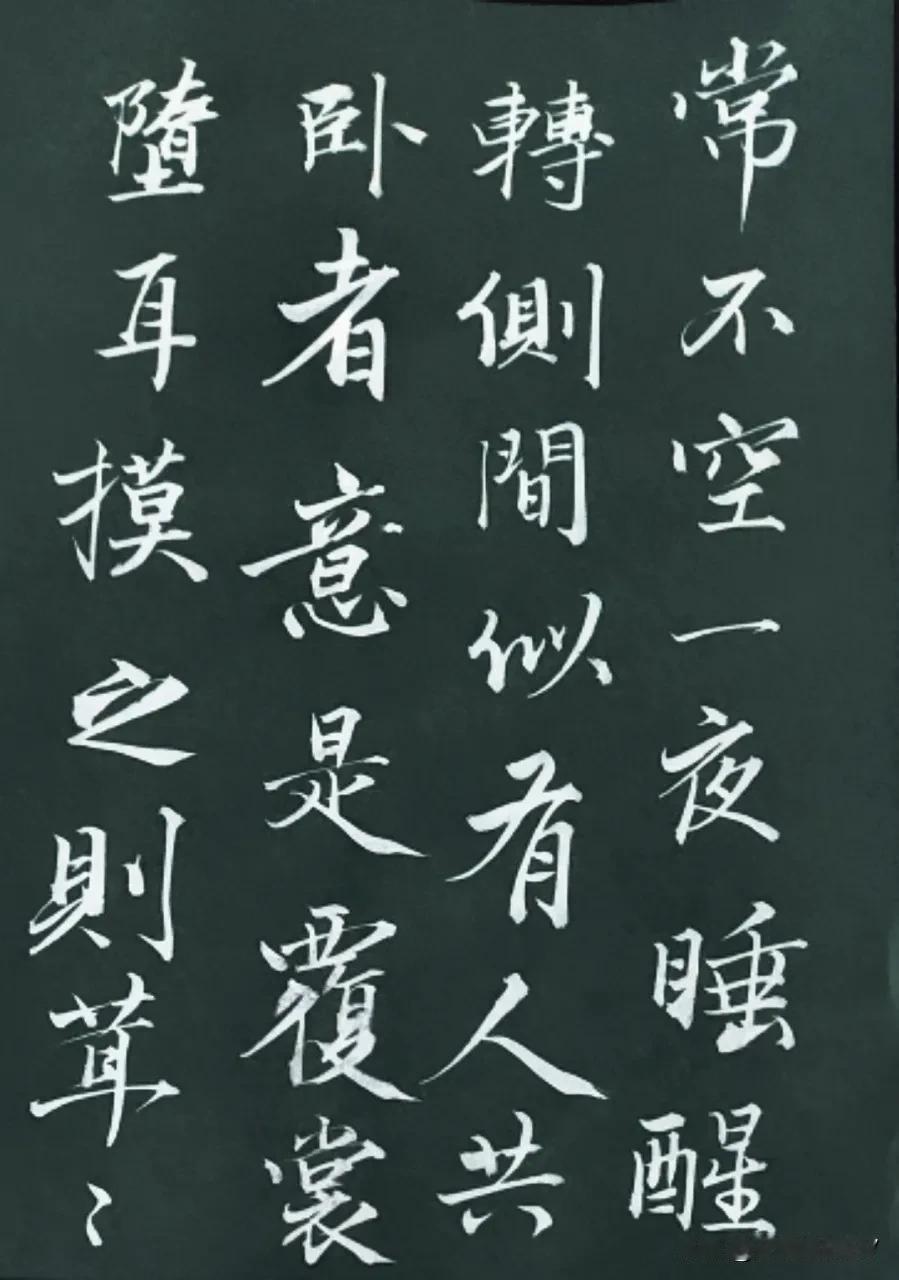 常不空一夜睡醒
轉側間似有人共
卧者意是覆裳
墮耳摸之則茸〻